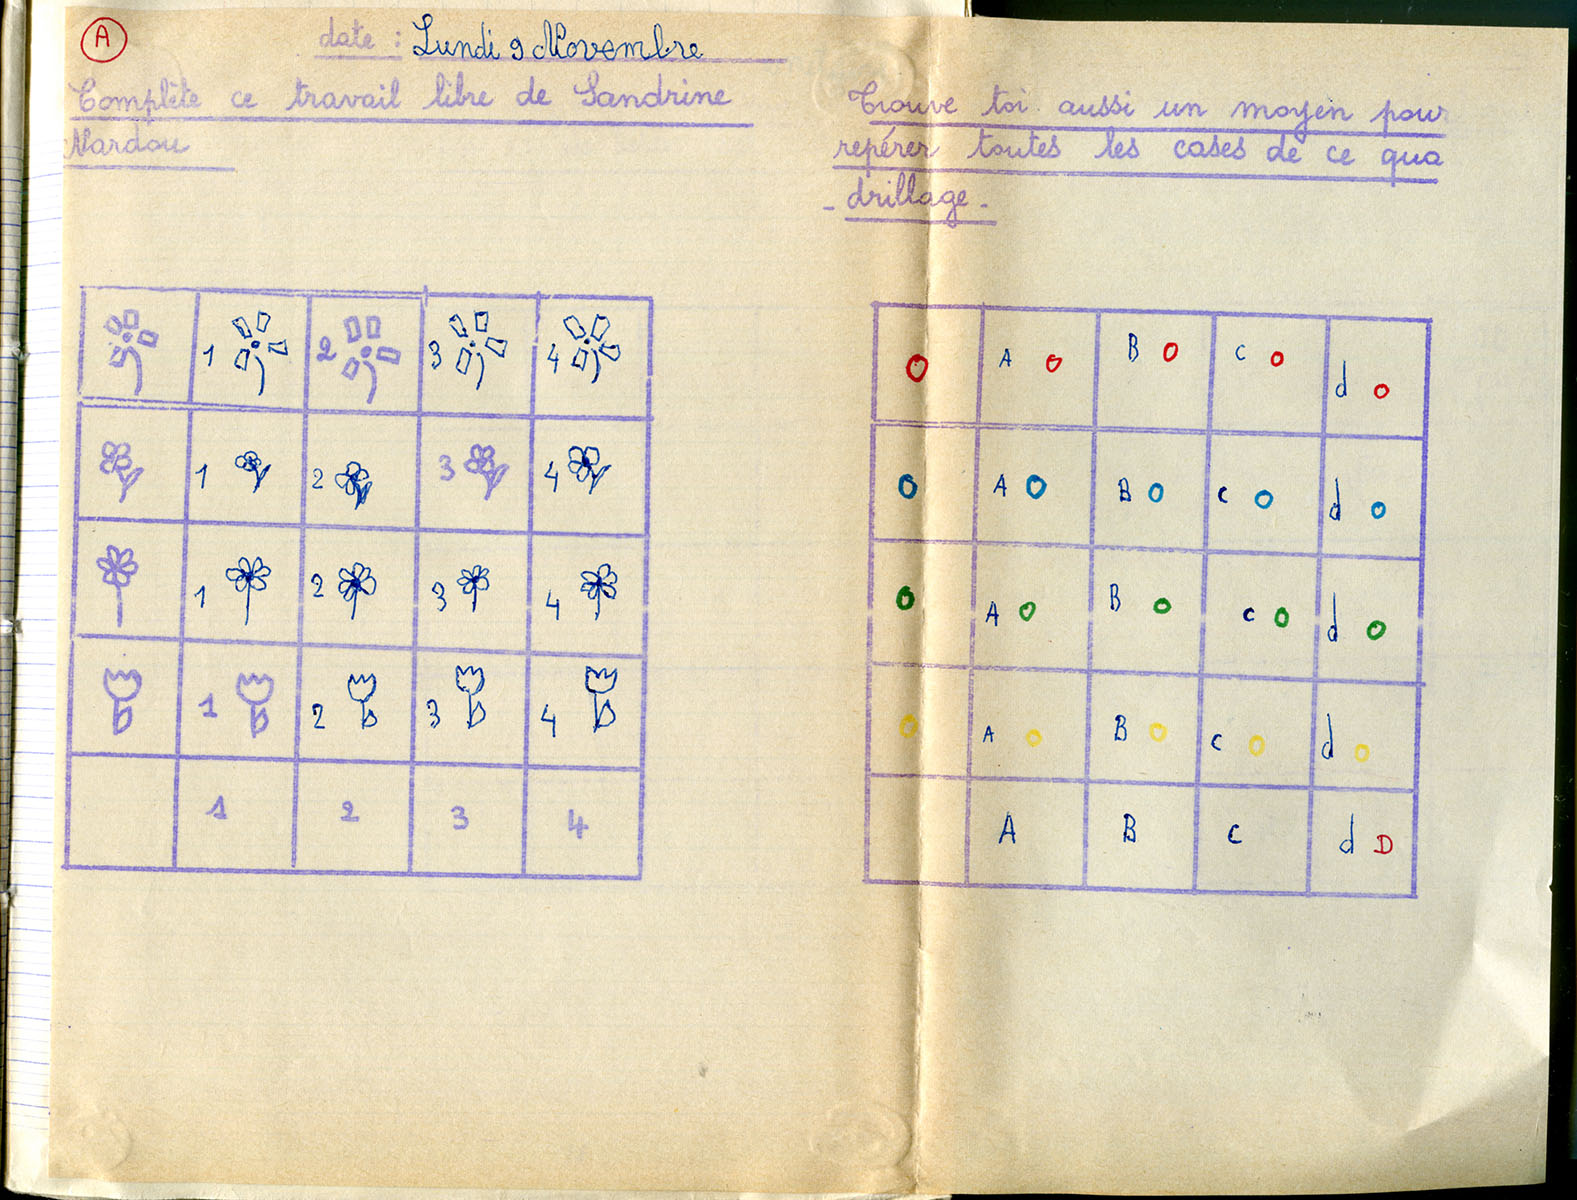 A
date : Lundi 9 Novembre
Complète ce travail libre de Sandrine
Nardou
1 2 3 4
1 2 3 4
1 2 3 4
1 2 3 4
1 2 3 4
Trouve toi aussi un moyen pour
repérer toutes les cases de ce qua
- drillage -
A B C d
A B C d
A B C d
A B C d
A B C d D